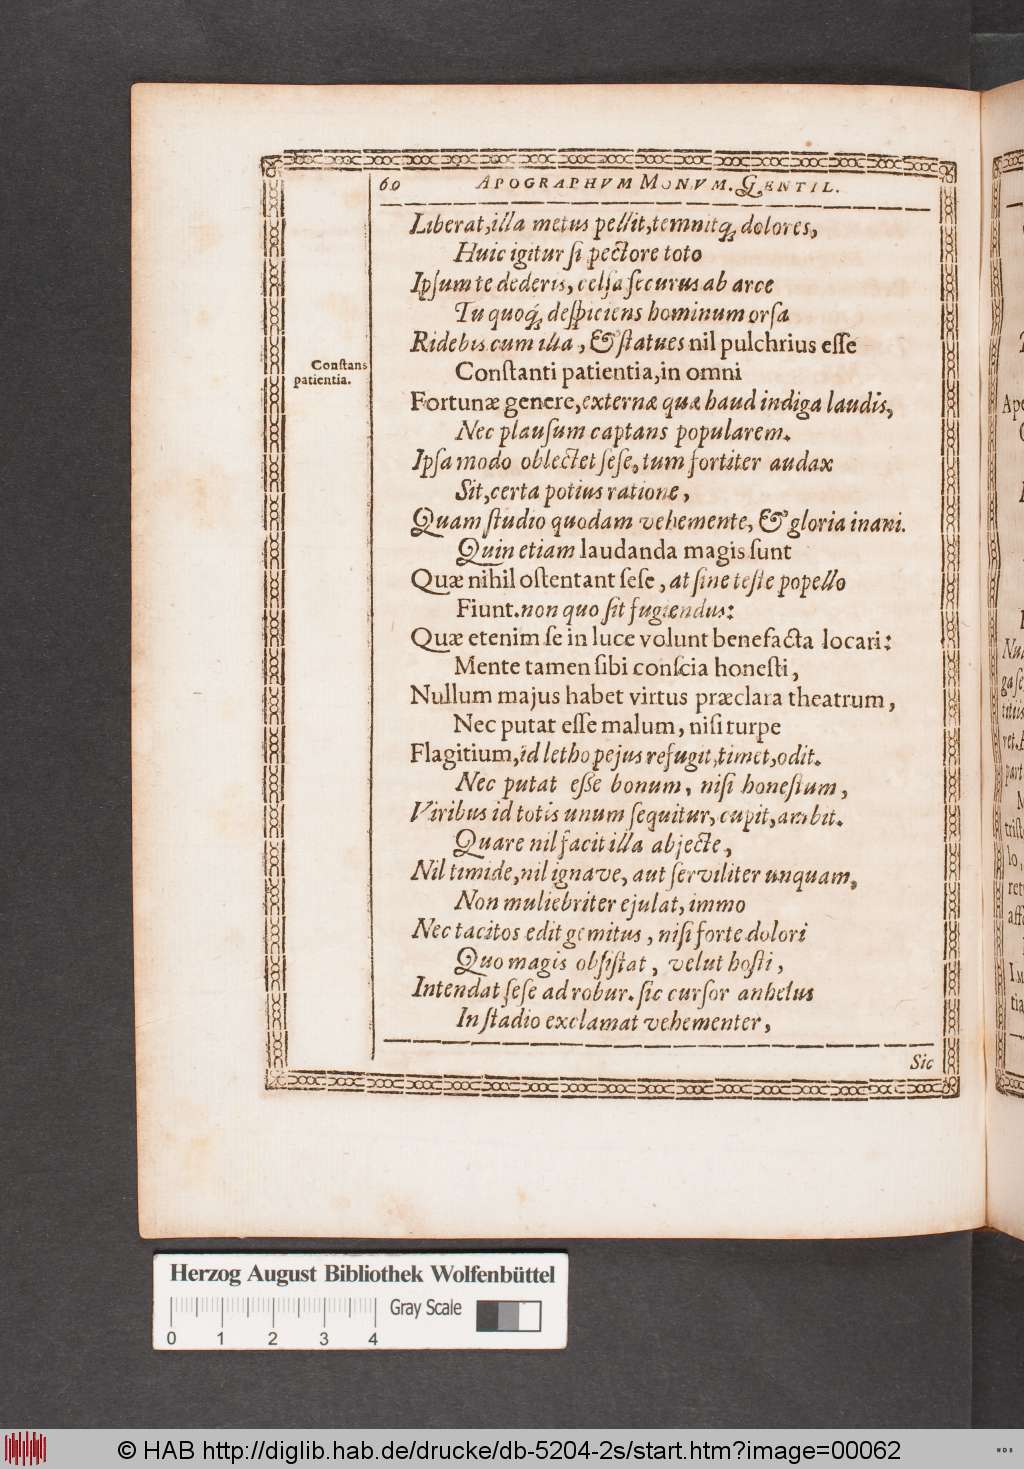 60 APOGRAPHVM MONVM. GENTIL.
Liberat, illa metus pellit, temnitq́; dolores,
Huic igitur si pectore toto
Ipsum te dederis, celsa securus ab arce
Tu quoq́; despiciens hominum orsa
Ridebis cum illa, & statues nil pulchrius esse
Constans
patientia.
Constanti patientia, in omni
Fortunæ genere, externæ quæ haud indiga laudis,
Nec plausum captans popularem.
Ipsa modo oblectet sese, tum fortiter audax
Sit, certa potius ratione,
Quam studio quodam vehemente, & gloria inani.
Quin etiam laudanda magis sunt
Quæ nihil ostentant sese, at sine teste popello
Fiunt. non quo sit fugiendus:
Quæ etenim se in luce volunt benefacta locari:
Mente tamen sibi conscia honesti,
Nullum majus habet virtus præclara theatrum,
Nec putat esse malum, nisi turpe
Flagitium, id letho pejus refugit, timet, odit.
Nec putat esse bonum, nisi honestum,
Viribus id totis unum sequitur, cupit, ambit.
Quare nil facit illa abjecte,
Nil timide, nil ignave, aut serviliter unquam,
Non muliebriter ejulat, immo
Nec tacitos edit gemitus, nisi forte dolori
Quo magis obsistat, velut hosti,
Intendat sese ad robur. sic cursor anhelus
In stadio exclamat vehementer,
Sic
Herzog August Bibliothek Wolfenbüttel
Gray Scale
0 1 2 3 4
© HAB http://diglib.hab.de/drucke/db-5204-2s/start.htm?image=00062